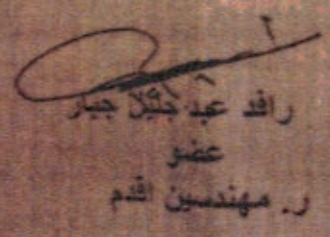 رافد عبد جليل جبار
عضو
ر. مهندسين اقدم